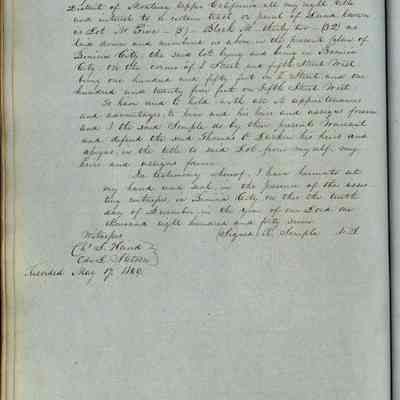 District of Monterey Upper California all my right title
and interest to a certain tract or parcel of Land known
as Lot No Five - (5) - Block No thirty two - (32) as
laid down and numbered as above in the present plan of
Benicia City, the said lot lying and being in Benicia
City on the corner of I Street and fifth Street West
being one hundred and fifty feet on I Street and one
hundred and twenty five feet on Fifth Street West
To have and to hold, with all its appurtenances
and advantages, to him and his heirs and assigns forever
and I the said Semple do by these presents Warrant
and defend the said Thomas O. Larkin his heirs and
assigns, in the title to said Lot from myself, my
heirs and assigns forever.
In testimony whereof, I have hereunto set
my hand and seal, in the presence of the
witnesses, in Benicia City on this the tenth
day of December, in the year of our Lord one
thousand eight hundred and forty seven
Witnesses Signed R. Semple
Recorded May 17, 1849